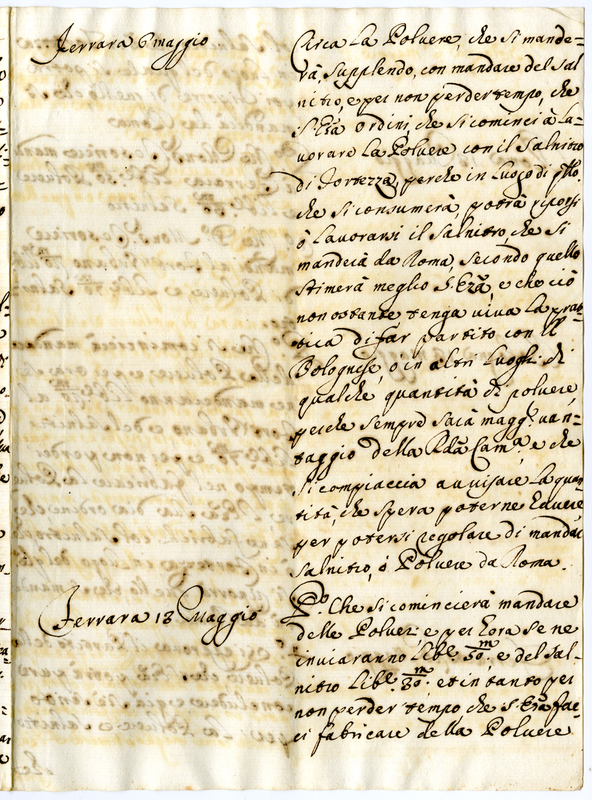 Ferrara 6 maggio
Circa La Polvere, che si mande=
rà, supplendo, con mandare del sal
nitro, e per non perder tempo, che
S. Eza ordini, che si cominci à La=
vorare La Polvere con il Salnitro
di Fortezza, perche in Luogo di qto.
che si consumerà, potrà riporsi
ò Lavorarsi il salnitro, che si
manderà da Roma, secondo quello
stimerà meglio S. Eza, e che ciò
non ostante tenga viva La prat
tica di far partito con il
Bolognese, o in altri Luoghi di
qualche quantità di polvere,
perche sempre sarà magg. van=
taggio della Rda Cama. e che
si compiaccia avvisare La quan
tità, che spera poterne havere
per potersi regolare di mandar
salnitro, ò Polvere da Roma.
Ferrara 18 Maggio
Po. Che si comincierà mandare
delle Polveri e per hora se ne
inviaranno Libe. 50m. e del sal=
nitro Libe. 30m. et in tanto per
non perder tempo che S. Eza fac=
ci fabricare della Polvere